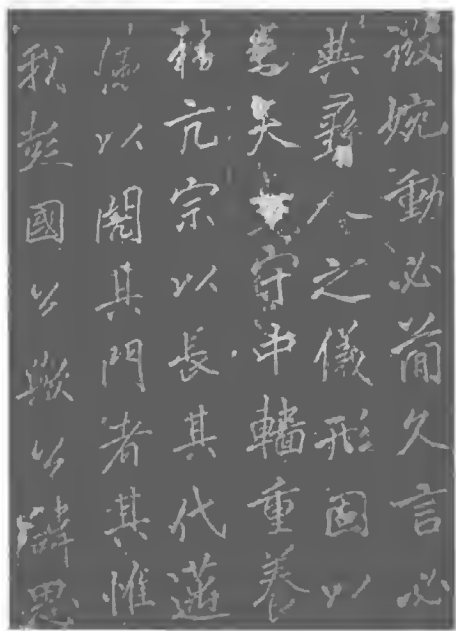 婉動必簡久言必
典彝人之儀形固以
矣守沖重養
亢宗以長其代邁
德以其門者其惟
我彭國公歟公諱思